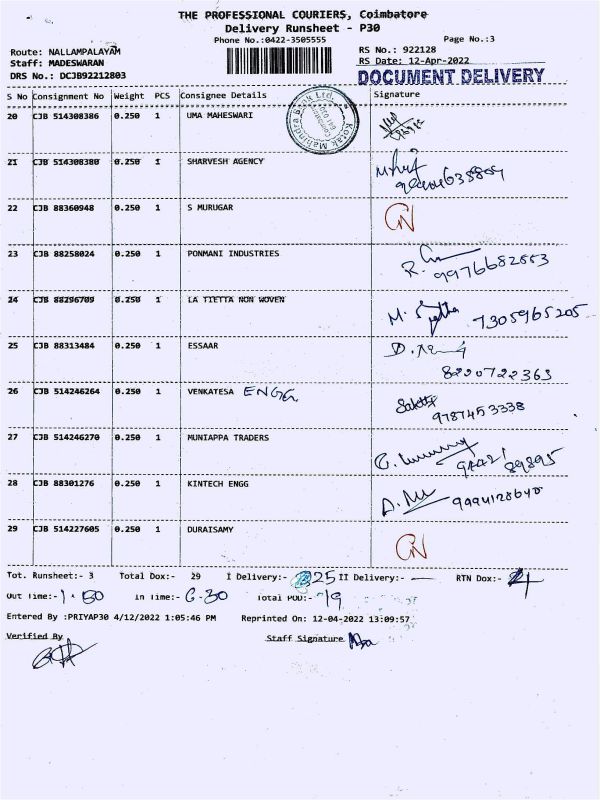 THE PROFESSIONAL COURIERS, Coimbatore
Delivery Runsheet - P30
Phone No.:0422-3505555
Page No.:3
Route: NALLAMPALAYAM
RS No.: 922128
Staff: MADESWARAN
RS Date: 12-Apr-2022
DRS No.: DCJB92212803
DOCUMENT DELIVERY
S No Consignment No Weight PCS Consignee Details Signature
20 CJB 514308386 0.250 1 UMA MAHESWARI
Kotak Mahindra Bank Ltd.
21 CJB 514308380 0.250 1 SHARVESH AGENCY
22 CJB 88360948 0.250 1 S MURUGAR
23 CJB 88258024 0.250 1 PONMANI INDUSTRIES
9976682853
24 CJB 88296709 0.250 1 LA TIETTA NON WOVEN
7305965205
25 CJB 88313484 0.250 1 ESSAAR
8220722363
26 CJB 514246264 0.250 1 VENKATESA ENGG
9787453338
27 CJB 514246270 0.250 1 MUNIAPPA TRADERS
28 CJB 88301276 0.250 1 KINTECH ENGG
9994128640
29 CJB 514227605 0.250 1 DURAISAMY
Tot. Runsheet:- 3 Total Dox:- 29 I Delivery:- 25 II Delivery:- — RTN Dox:- 4
Out Time:- 1.50 In Time:- 6.30 Total POD:- 19
Entered By :PRIYAP30 4/12/2022 1:05:46 PM Reprinted On: 12-04-2022 13:09:57
Verified By
Staff Signature